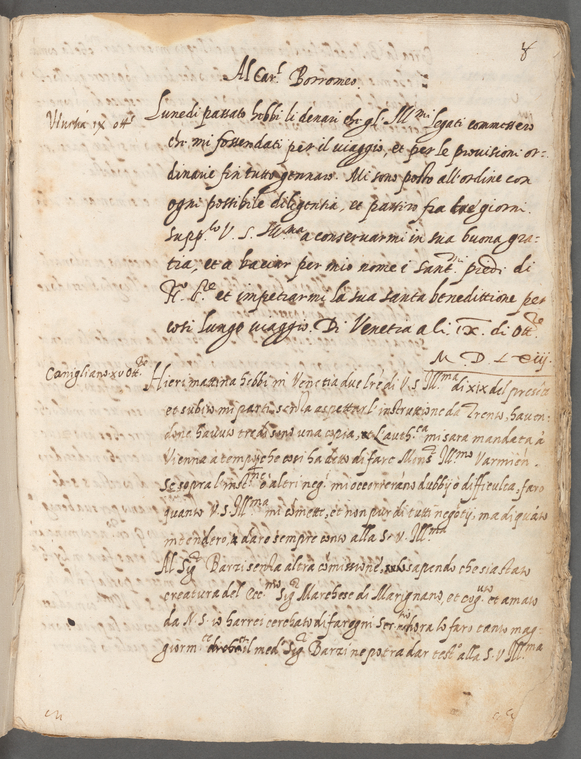 8
Al Car.l Borromeo.
Venetia ix ott.e
Lunedi passato hebbi li denari che gl' Ill.mi legati commessero
che mi fossendati per il viaggio, et per le provisioni or-
dinarie fin tutto gennaro. Mi sono posto all'ordine con
ogni possibile diligentia, et partiro fra tre giorni.
Supp.co V. S. Ill.ma a conservarmi in sua buona gra-
tia, et a baciar per mio nome i sant.mi piedi di
et impetrarmi la sua santa benedittione per
cosi lungo viaggio. Di Venetia a li IX. di Ott.e
M D L
Conigliano xv Ott.e
Hieri mattina hebbi in Venetia due lre di V. S. Ill.ma di xix del
et subito mi parti senza aspettar l'instruttione da Trento, haven-
done havuto tre di sono una copia, et l'auth.ca mi sara mandata à
Vienna a tempo che cosi ha detto di fare Mons.r Ill.mo Varmien.
Se sopra l'inst.ne o altri neg.i mi occorrerano dubbij ò difficulta, faro
quanto V. S. Ill.ma mi comette, et non pur di tutti negotij, ma di quāto
intendero, daro sempre conto alla S. V. Ill.ma
Al Sig.r Barzi senza altra comissione, sapendo che sia stato
creatura del Ecc.mo Sig.r Marchese di Marignano, et cog.to et amato
da N. S. io harrei cerchato di far ogni ser.tio hora lo faro tanto mag-
giorm.te il med.o Sig.r Barzi ne potra dar test.o alla S. V. Ill.ma